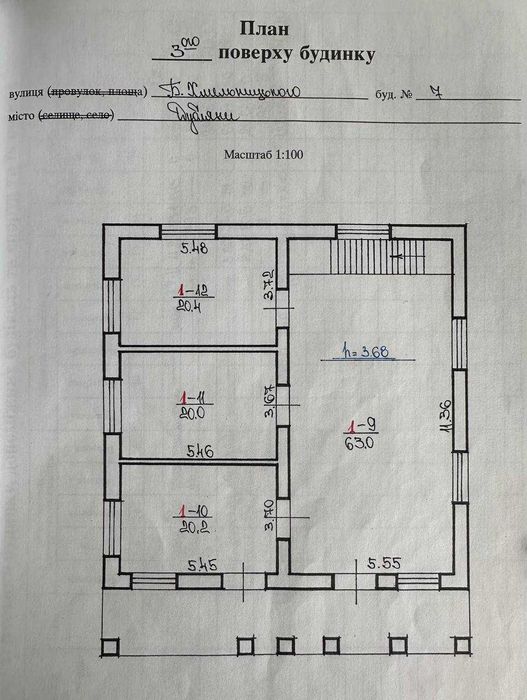 План
3го поверху будинку
вулиця (провулок, площа) Б. Хмельницького буд. № 7
місто (селище, село) Дубляни
Масштаб 1:100
5.48
1-12
20.4
3.72
h=3.68
1-11
20.0
3.67
5.46
1-9
63.0
11.36
1-10
20.2
3.70
5.45
5.55